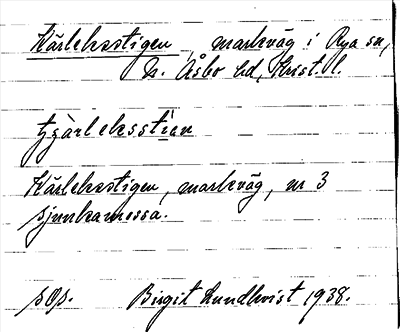 Kärleksstigen, markväg i Rya sn,
N. Åsbo hd, Krist. l.
tjä̀rleksstían
Kärleksstigen, markväg, nr 3
Sjunkamossa.
sOp. Birgit Lundkvist 1938.